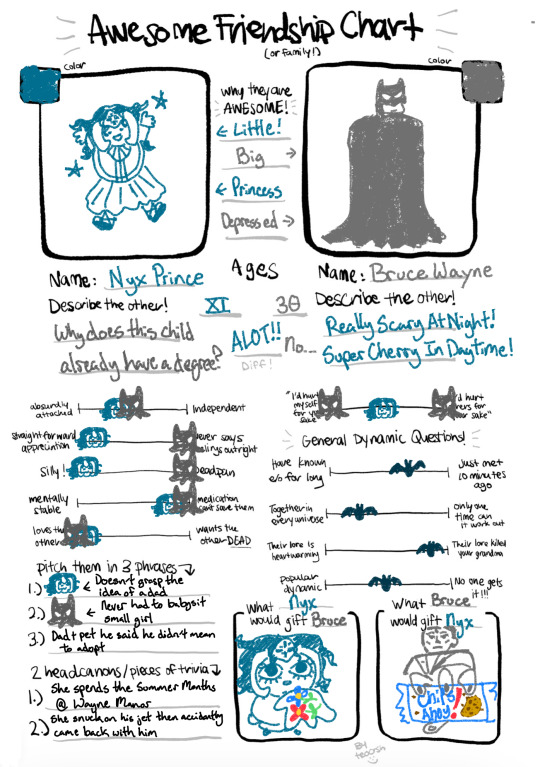 Awesome Friendship Chart
(or family!)
color
color
Why they are
AWESOME!
← Little!
Big →
← Princess
Depressed →
Name: Nyx Prince
Ages
Name: Bruce Wayne
Describe the other!
XI
30
Describe the other!
Why does this child
already have a degree?
ALOT!!
No...
Diff!
Really Scary At Night!
Super Cherry In Daytime!
absurdly
attached
Independent
straight forward
appreciation
never says
outright
Silly!
Deadpan
mentally
stable
medication
can't save them
loves the
other
wants the
other DEAD
"I'd hurt
myself
for
sake"
I'd hurt
for
sake"
General Dynamic Questions!
Have known
e/o for long
Just met
10 minutes
ago
Together in
every universe
only one
time can
it work out
Their lore is
heartwarming
Their lore killed
your grandma
popular
dynamic
No one gets
it!!!
pitch them in 3 phrases
1.) ← Doesn't grasp the
idea of a dad
2.) ← Never had to babysit
small girl
3.) Dad + pet he said he didn't mean
to adopt
2 headcanons/pieces of trivia
1.) She spends the Summer Months
@ Wayne Manor
2.) She snuck on his jet then accidently
came back with him
What Nyx
would gift Bruce
What Bruce
would gift Nyx
Chips
Ahoy!
By